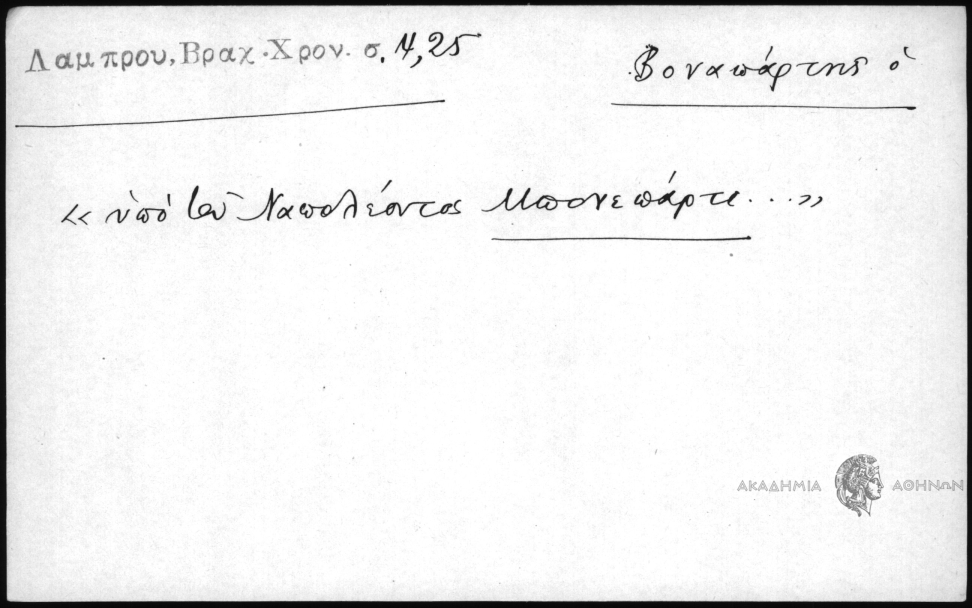 Λαμπρου, Βραχ. Χρον. σ. 4,25
Βοναπάρτης ὁ
« ὑπὸ τοῦ Ναπολέοντος Μπονεπάρτε ... »
ΑΚΑΔΗΜΙΑ ΑΘΗΝΩΝ